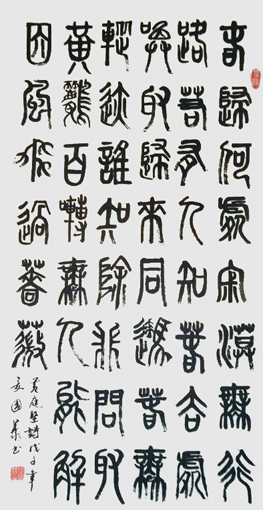 春歸何處寂寞無行
路若有人知春去處
喚取歸來同住春無
蹤迹誰知除非問取
黃鸝百囀無人能解
因風飛過薔薇
黃庭堅詩戊子年
國華书